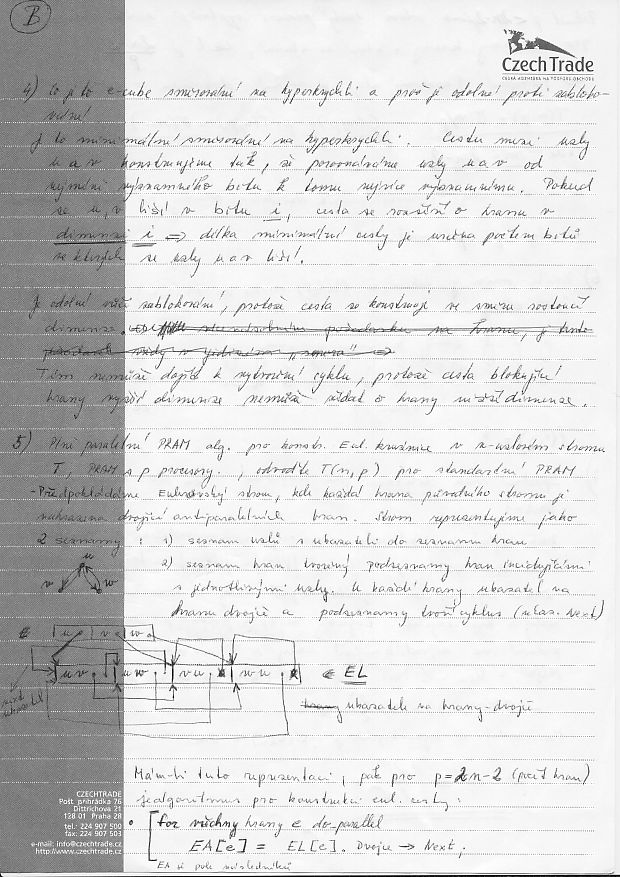 B
Czech Trade
ČESKÁ AGENTURA NA PODPORU OBCHODU
4) Co je to e-cube směrování na hyperkrychli a proč je odolné proti zabloko-
vání?
Je to minimální směrování na hyperkrychli. Cestu mezi uzly
u a v konstruujeme tak, že porovnáváme uzly u a v od
nejméně významného bitu k tomu nejvíce významnému. Pokud
se u, v liší v bitu i, cesta se rozšíří o hranu v
dimenzi i ⇒ délka minimální cesty je určena počtem bitů
ve kterých se uzly u a v liší.
Je odolné vůči zablokování, protože cesta se konstruuje ve směru rostoucí
dimenze.
Tím nemůže dojít k vytvoření cyklu, protože cesta blokující
hrany vyšší dimenze nemůže žádat o hrany nižší dimenze.
5) Plně paralelní PRAM alg. pro konstr. Eul. kružnice v n-uzlovém stromu
T, PRAM s p procesory, odvoďte T(n,p) pro standardní PRAM
- Předpokládáme Eulerovský strom, kde každá hrana původního stromu je
nahrazena dvojicí antiparalelních hran. Strom reprezentujeme jako
2 seznamy: 1) seznam uzlů s ukazateli do seznamu hran
2) seznam hran tvořený podseznamy hran incidujícími
s jednotlivými uzly. U každé hrany ukazatel na
hranu dvojče a podseznamy tvoří cyklus (ukaz. Next)
u
v w
u v w
uv uw vu wu ← EL
next
ukazatel
ukazatele na hrany-dvojče
Mám-li tuto reprezentaci, pak pro p=2n-2 (počet hran)
je algoritmus pro konstrukci eul. cesty:
• for všechny hrany e do-parallel
EA[e] = EL[e]. Dvojce → Next;
EA je pole následníků
CZECHTRADE
Pošt. přihrádka 76
Dittrichova 21
128 01 Praha 28
tel.: 224 907 500
fax: 224 907 503
e-mail: info@czechtrade.cz
http://www.czechtrade.cz